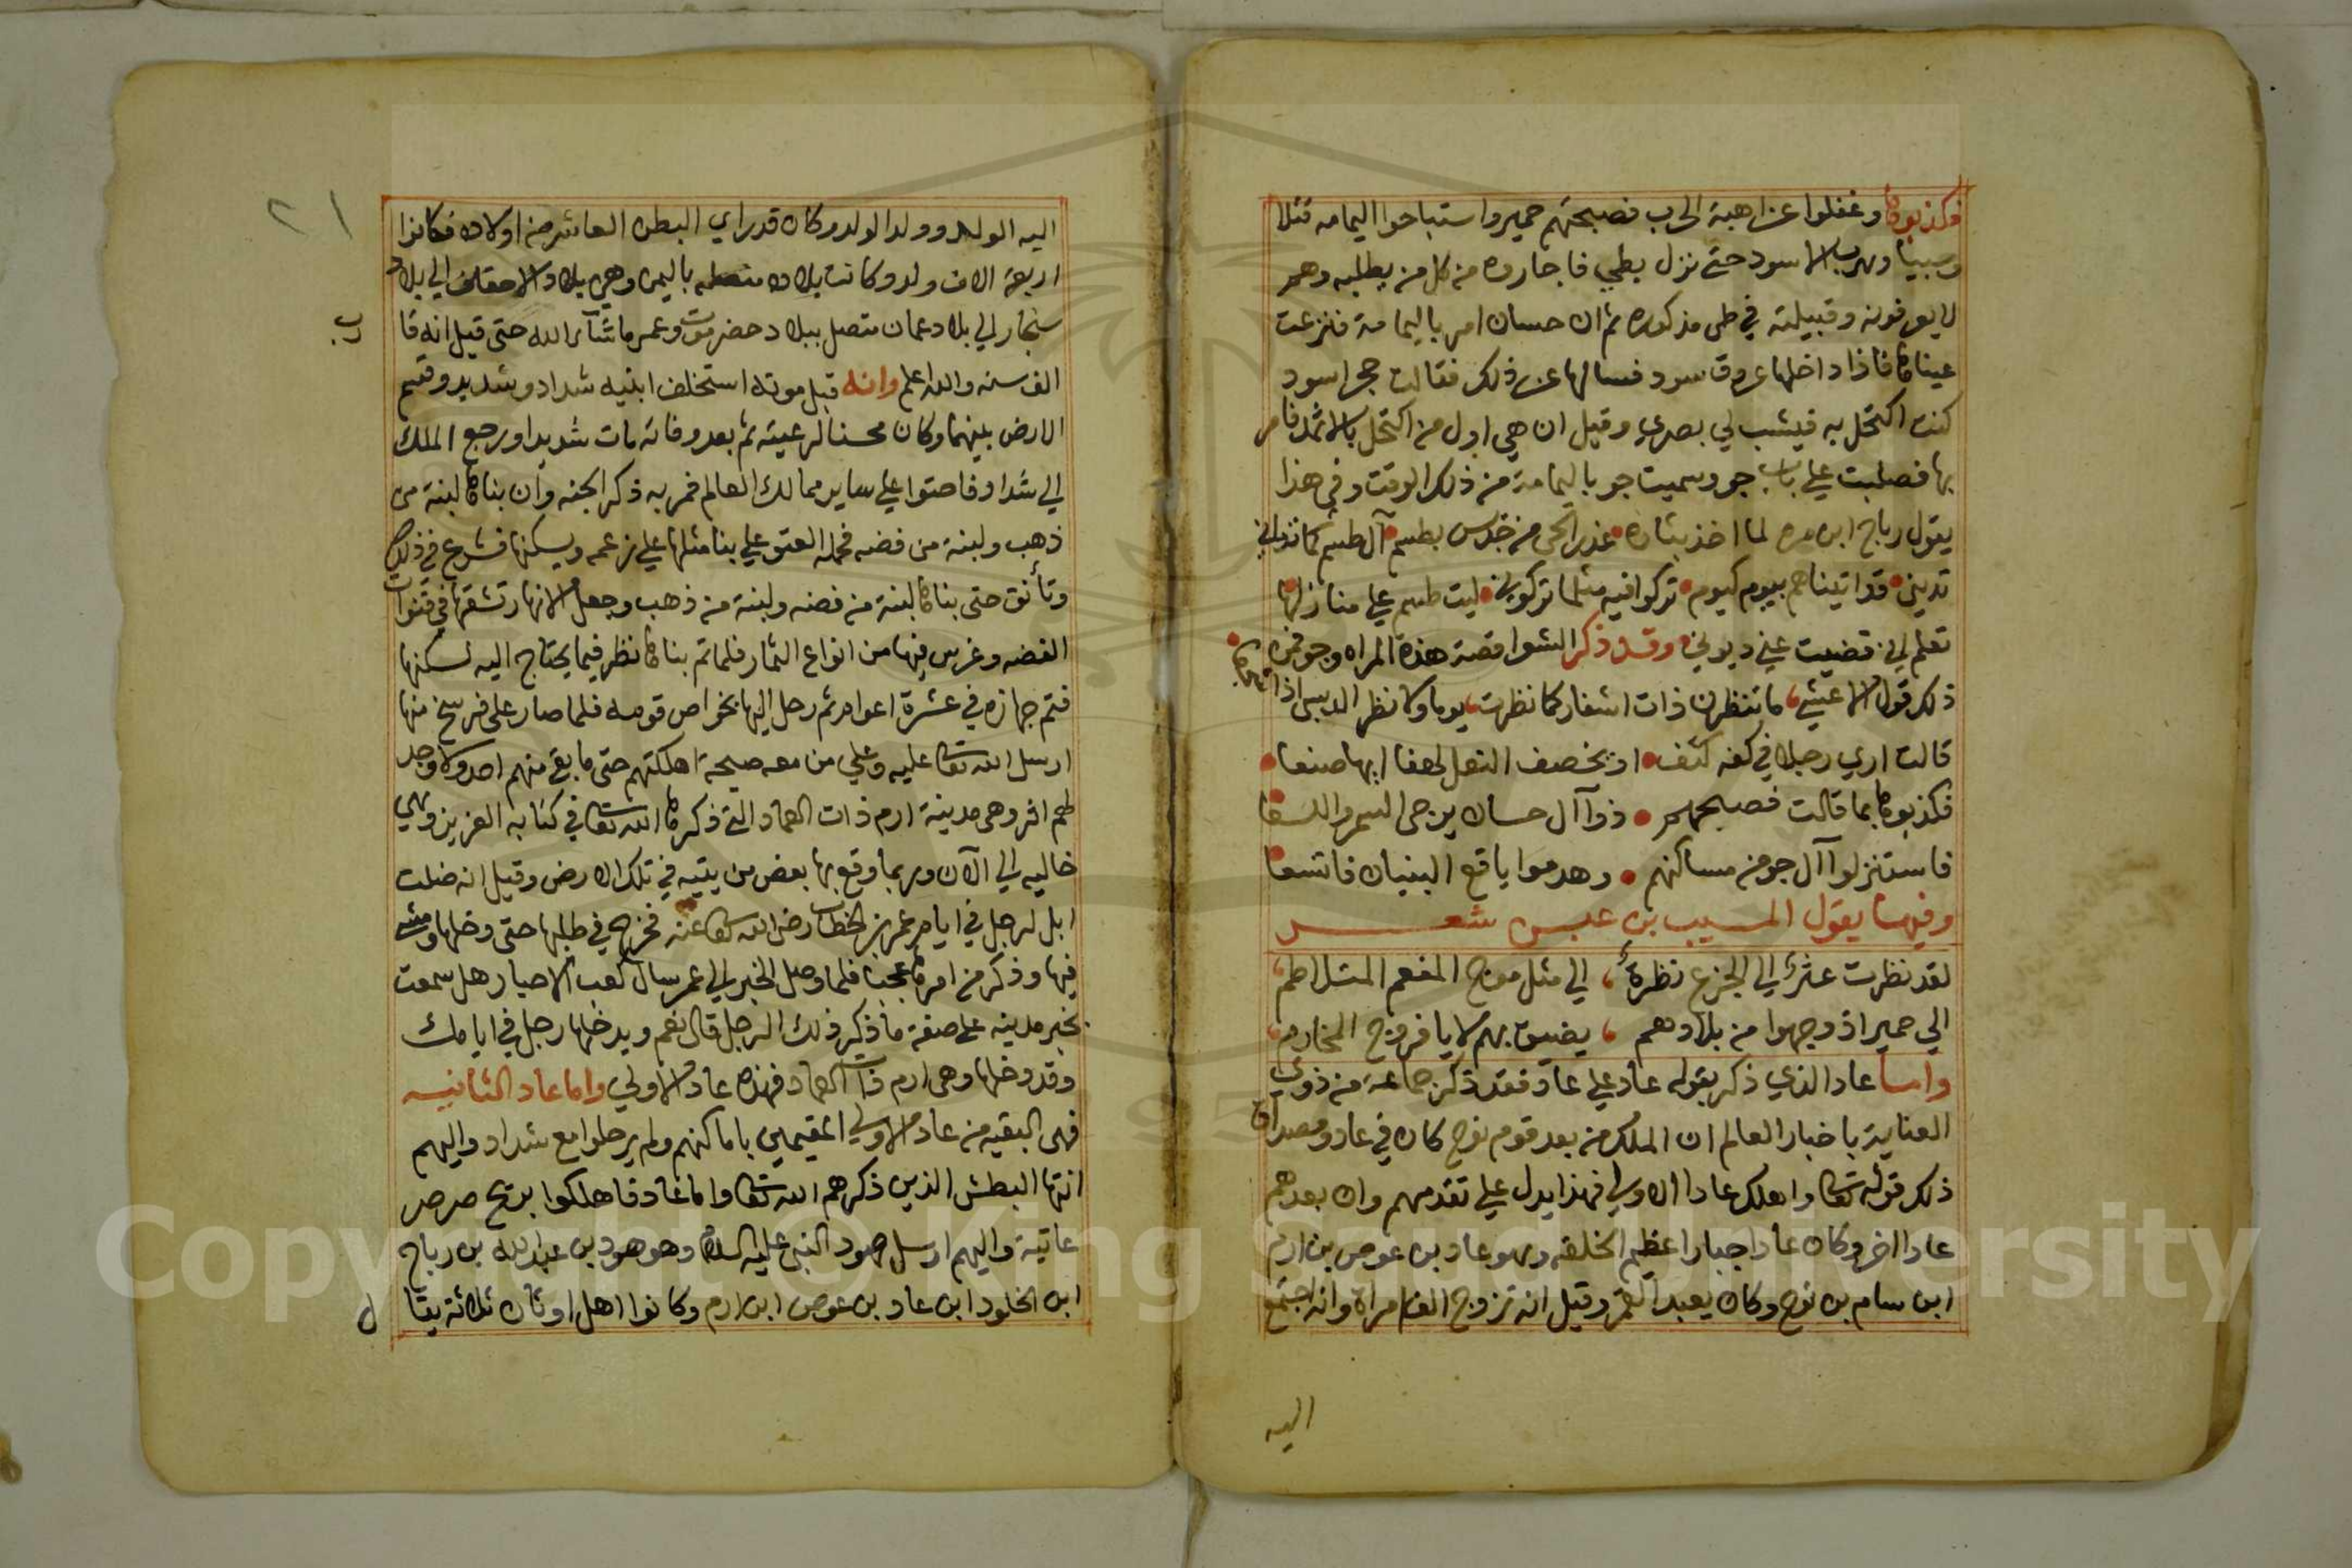 فكذبوها وغفلوا عن اهبة الحرب فصبحتهم حمير واستباحوا اليمامه قتلا
وسبيا وهرب الاسود حتى نزل بطي فاجاروه من كل من يطلبه وهم
لا يعرفونه وقبيلته في طي مذكوره ثم ان حسان امر باليمامة فنزعت
عيناها فاذا داخلها عروق سود فسالها عن ذلك فقالت حجر اسود
كنت اكتحل به فيشب لي بصري وقيل ان هي اول من اكتحل بالاثمد فامر
بها فصلبت علي باب جو وسميت جو باليمامة من ذلك الوقت وفي هذا
يقول رباح ابن مره لما اخذ بثاره غدر الحي من جديس بطسم آل طسم كما تداني
تديني قد اتيناهم بيوم كيوم تركوا فيه مثلما تركوني ليت طسم علي منازلها
تعلم اني قضيت عني ديوني وقد ذكر الشعرا قصة هذه المراه وجو فمن
ذلك قول الاعشي ما تنظرن ذات اشفار كما نظرت يوما ولا نظر الديبي اذا
قالت اري رجلا في كفه كتف او يخصف النعل لهفا ايها صنعا
فكذبوها بما قالت فصبحهم ذوا آل حسان يزجي السمر والسعا
فاستنزلوا آل جو من مساكنهم وهدموا يافع البنيان فاتسعا
وفيها يقول المسيب بن عبس شعر
لقد نظرت عنز الي الجزع نظرة الي مثل موج المفعم المتلاطم
الي حمير اذ وجهوا من بلادهم يضيق بهم لايا فروج المخارم
واما عاد الذي ذكر بقوله عاد علي عاد فقد ذكر جماعة من ذوي
العناية باخبار العالم ان الملك من بعد قوم نوح كان في عاد ومصداق
ذلك قوله تعالى واهلك عادا الاولي فهذا يدل علي تقدمهم وان بعدهم
عادا اخر وكان عاد جبارا عظيم الخلقه وهو عاد بن عوص بن ارم
ابن سام بن نوح وكان يعبد القمر وقيل انه تزوج الف امراة وانه اجتمع
اليه
٢١
اليه الولد وولد الولد وكان قد راي البطن العاشر من اولاده فكانوا
اربعة الاف ولد وكانت بلاده متصله باليمن وهي بلاد الاحقاف الي بلاد
سنجار الي بلاد عمان متصل ببلاد حضرموت وعمر ما شآء الله حتى قيل انه قا
رب
الف سنه والله اعلم وانه قبل موته استخلف ابنيه شداد وشديد وقسم
الارض بينهما وكان محسنا لرعيته ثم بعد وفاته مات شديدا ورجع الملك
الي شداد فاحتوا علي ساير ممالك العالم فمر به ذكر الجنه وان بناها لبنة من
ذهب ولبنة من فضه فحمله العتو علي بنا مثلها علي زعمه ويسكنها فشرع في ذلك
وتأنق حتى بناها لبنة من فضه ولبنة من ذهب وجعل الانهار تشقها في قنوات
الفضه وغرس فيها من انواع الثمار فلما تم بناها نظر فيما يحتاج اليه لسكنها
فتم جهازه في عشرة اعوام ثم رحل اليها بخواص قومه فلما صار على فرسخ منها
ارسل الله تعالى عليه وعلي من معه صيحة اهلكتهم حتى ما بقي منهم احد ولا وجد
لهم اثر وهى مدينة ارم ذات العماد التي ذكرها الله تعالى في كتابه العزيز وهي
خاليه الي الآن وربما وقع بها بعض من يتيه في تلك الارض وقيل انه ضلت
ابل لرجل في ايام عمر بن الخطاب رضي الله تعالى عنه فخرج في طلبها حتى دخلها ومشى
فيها وذكر من امرها عجبا فلما وصل الخبر الي عمر سال كعب الاحبار هل سمعت
بخبر مدينه علي صفة ما ذكر ذلك الرجل قال نعم ويدخلها رجل في ايامك
وقد دخلها وهى ارم ذات العماد فهذه عاد الاولي واما عاد الثانيه
فهى البقيه من عاد الاولي المقيمين باماكنهم ولم يرحلوا مع شداد واليهم
انتها البطش الذين ذكرهم الله تعالى واما عاد فاهلكوا بريح صرصر
عاتية واليهم ارسل هود النبي عليه السلام وهو هود بن عبد الله بن رباح
ابن الخلود ابن عاد بن عوص ابن ارم وكانوا اهل اوثان ثلاثة يقا
ل
Copyright © King Saud University